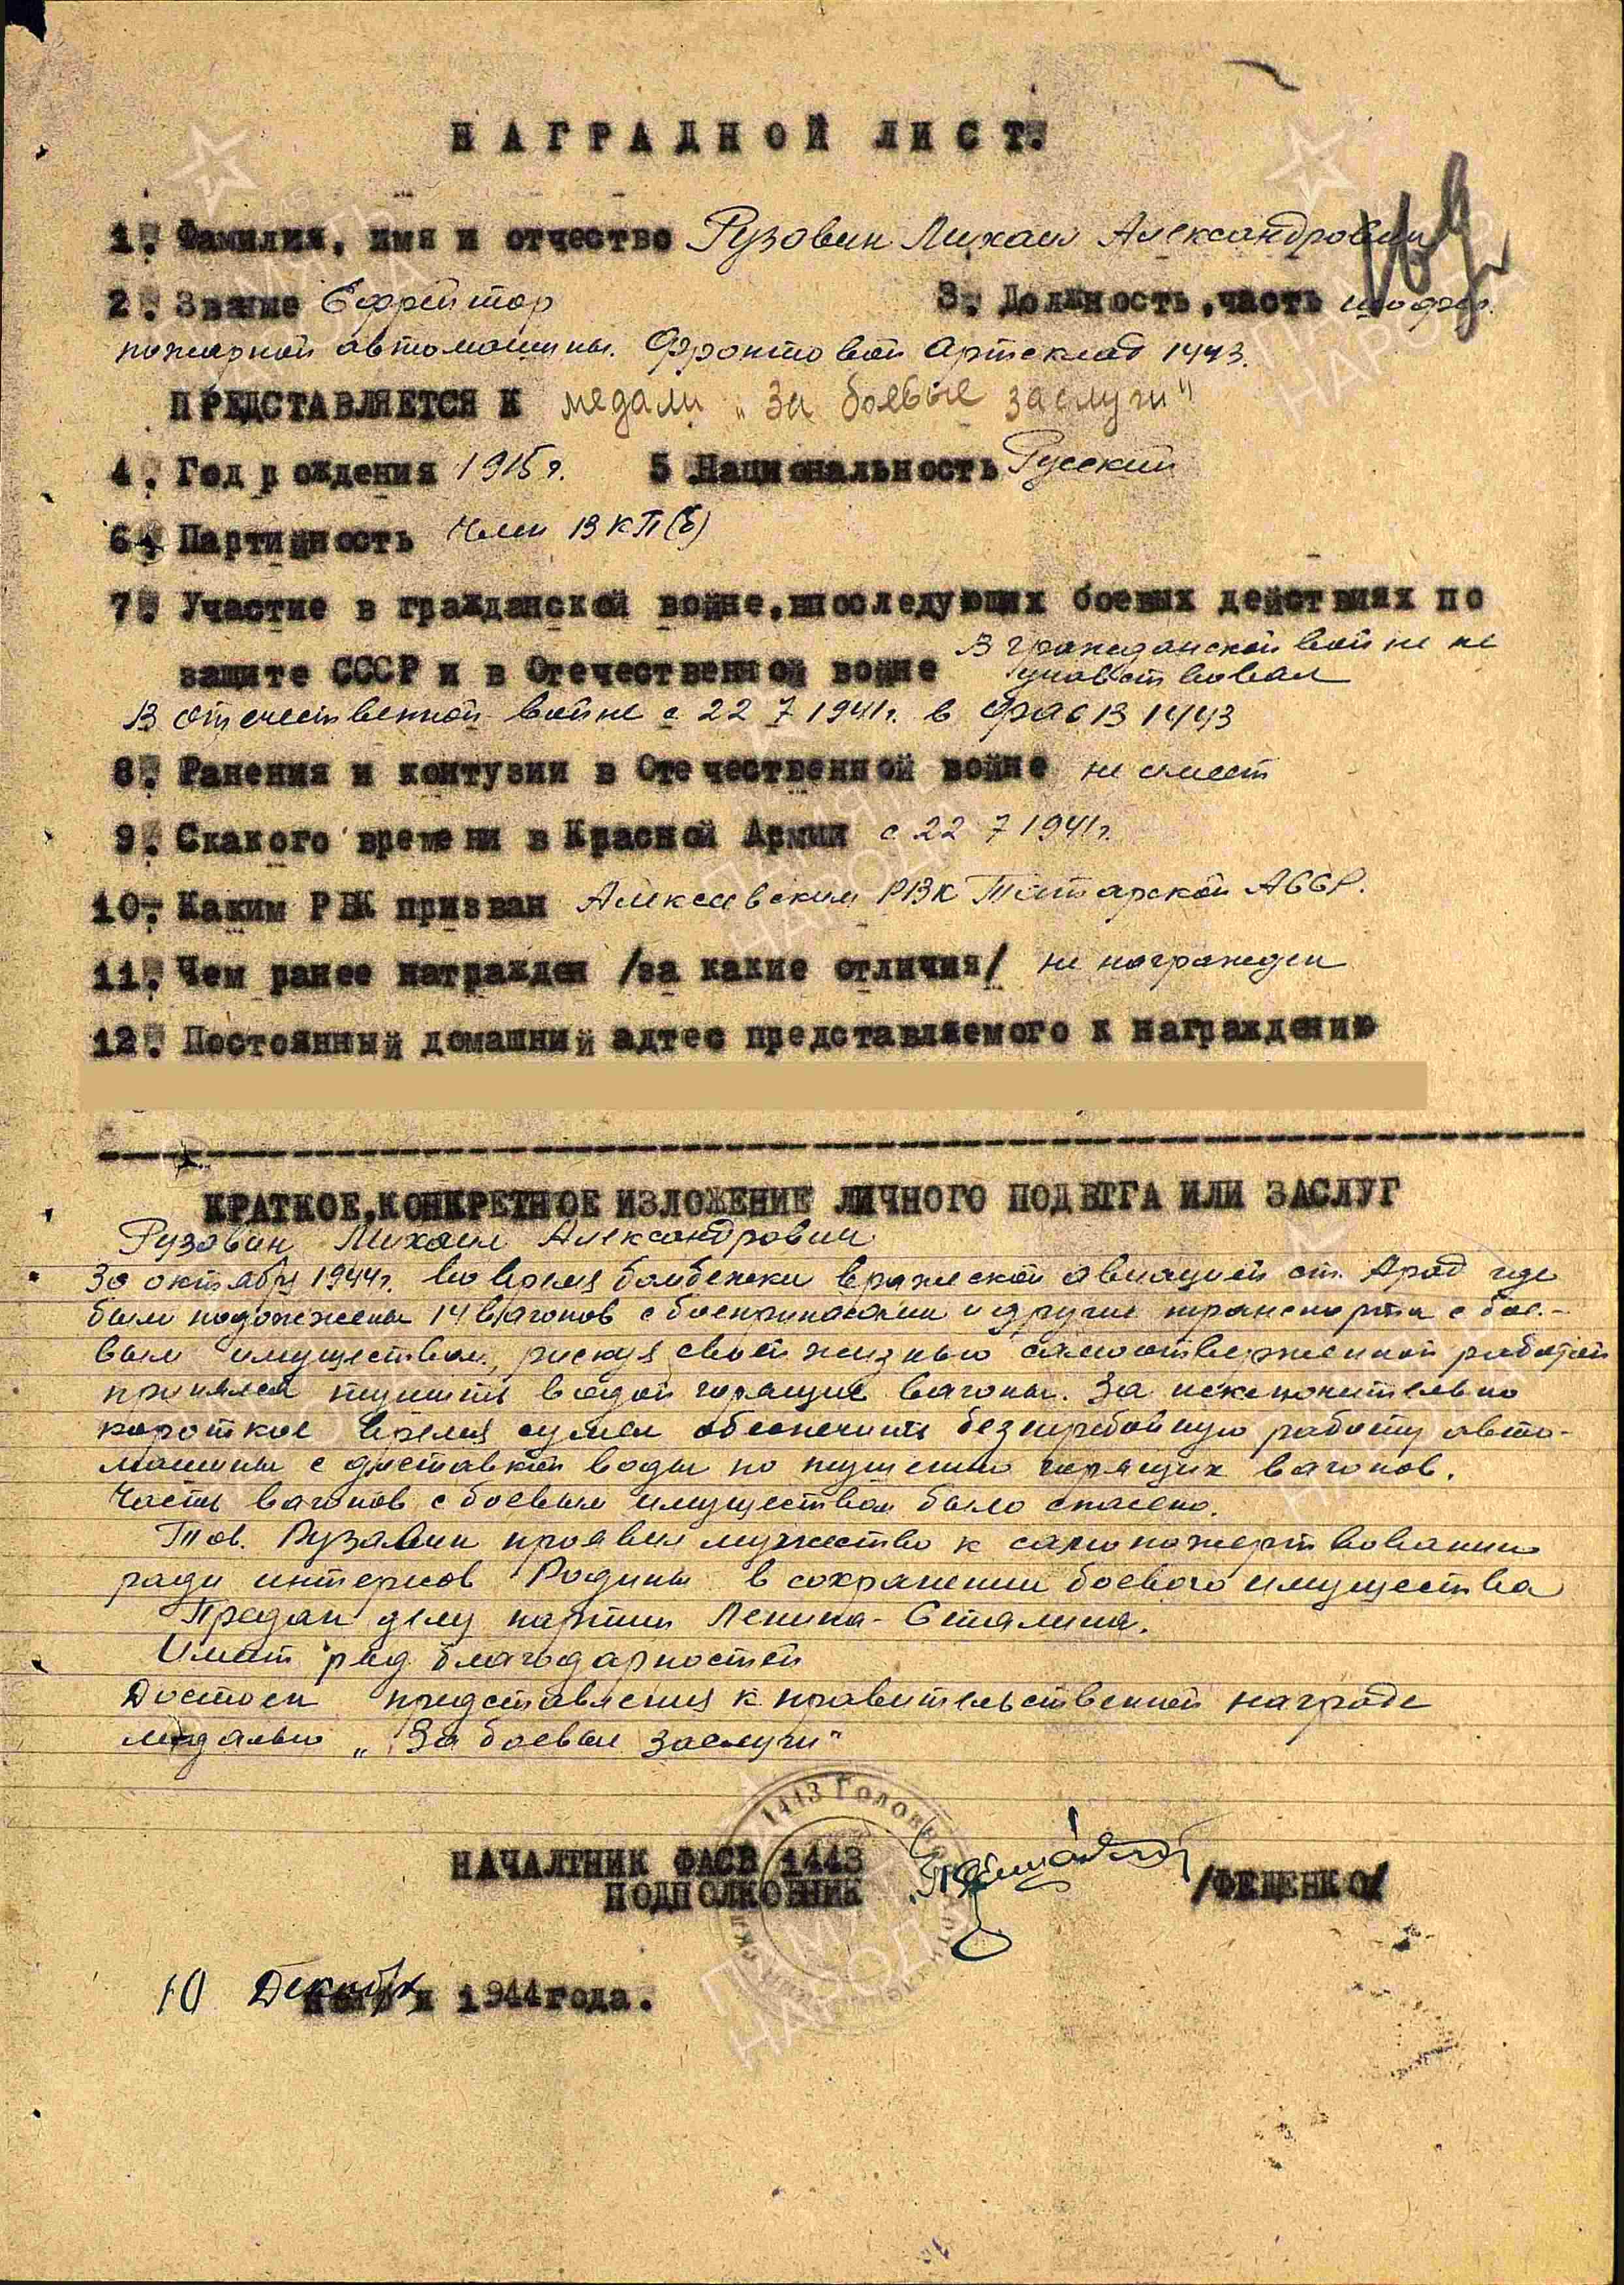 НАГРАДНОЙ ЛИСТ.
1. Фамилия, имя и отчество Рузовин Михаил Александрович
2. Звание Ефрейтор 3. Должность, часть шофер
пожарной автомашины. Фронтовой Артсклад 1443.
ПРЕДСТАВЛЯЕТСЯ К медали „За боевые заслуги"
4. Год рождения 1915 г. 5 Национальность Русский
6. Партийность Член ВКП(б)
7. Участие в гражданской войне, впоследующих боевых действиях по
защите СССР и в Отечественной войне В гражданской войне не
участвовал
В отечественной войне с 22 7 1941 г. в ФАСВ 1443
8. Ранения и контузии в Отечественной войне не имеет
9. Скакого времени в Красной Армии с 22 7 1941 г.
10. Каким РВК призван Алексеевским РВК Татарской АССР.
11. Чем ранее награжден /за какие отличия/ не награжден
12. Постоянный домашний адтес представляемого к награждению
КРАТКОЕ, КОНКРЕТНОЕ ИЗЛОЖЕНИЕ ЛИЧНОГО ПОДВТГА ИЛИ ЗАСЛУГ
Рузовин Михаил Александрович
30 октября 1944 г. во время бомбежки вражеской авиацией ст. Арад где
были подожжены 14 вагонов с боеприпасами и другие транспорта с бое-
вым имуществом, рискуя своей жизнью самоотверженной работой
принялся тушить водой горящие вагоны. За исключительно
короткое время сумел обеспечить безперебойную работу авто-
машины с доставкой воды по тушению горящих вагонов.
Часть вагонов с боевым имуществом было спасено.
Тов. Рузавин проявил мужество к самопожертвованию
ради интересов Родины в сохранении боевого имущества
Предан делу партии Ленина-Сталина.
Имеет ряд благодарностей
Достоен представления к правительственной награде
медалью „За боевые заслуги"
1443 Голов
НАЧАЛТНИК ФАСВ 1443
ПОДПОЛКОВНИК /ФЕЩЕНКО/
10 Декабря 1944 года.
ПАМЯТЬ
НАРОДА